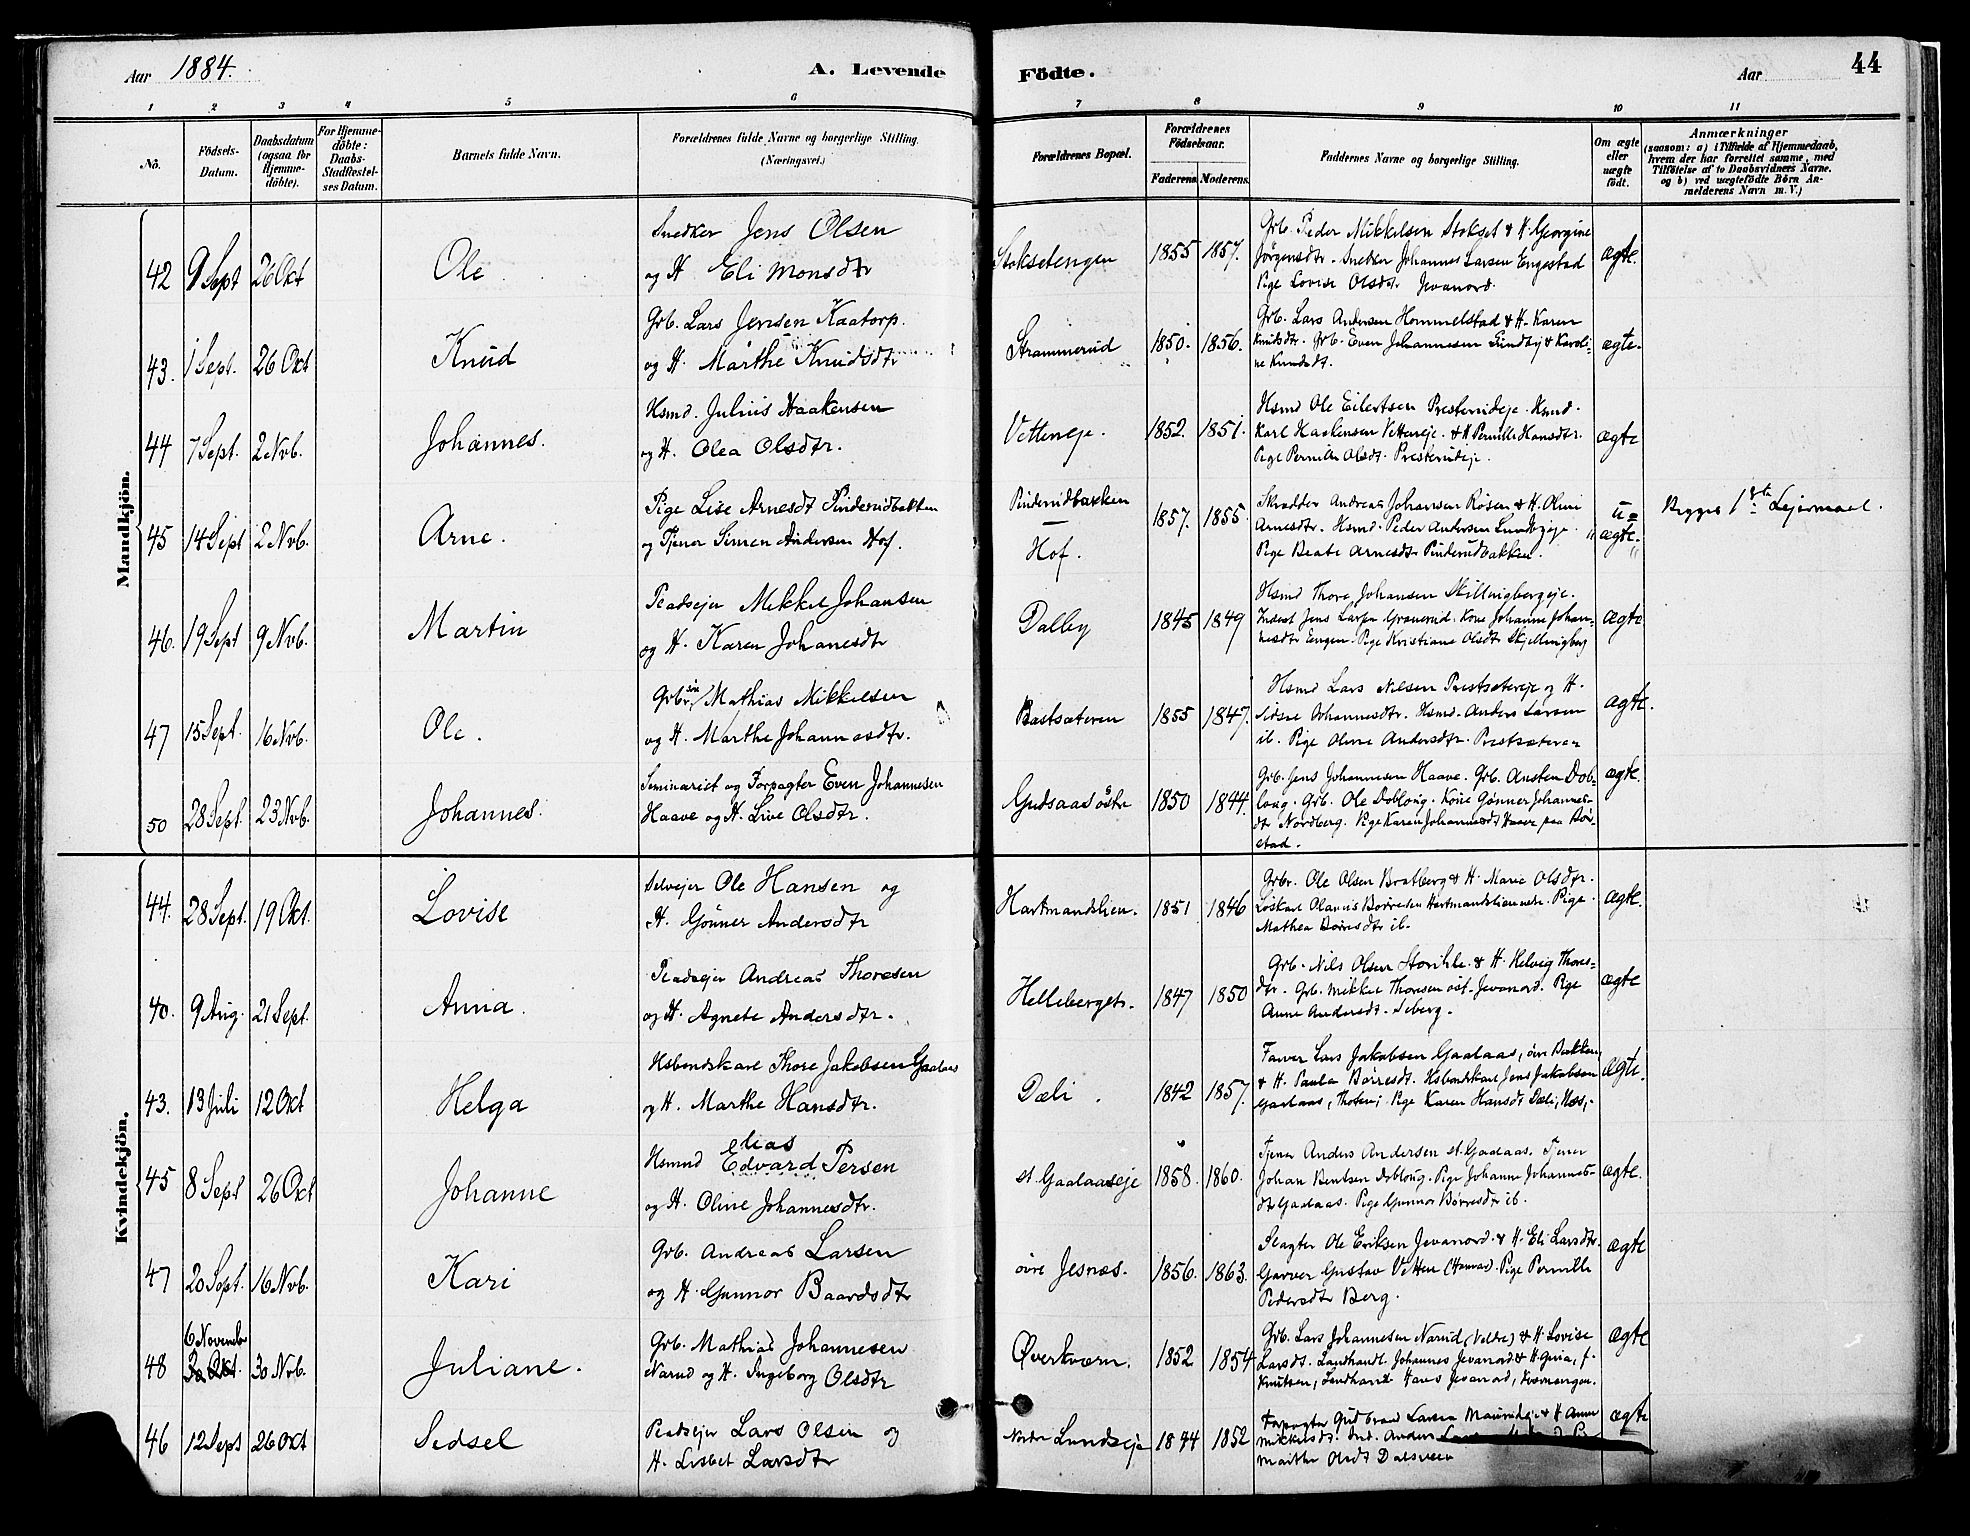 Aar 1884. A. Levende Födte. Aar 44
1 2 3 4 5 6 7 8 9 10 11
No. Födsels-Datum. Daabsdatum (ogsaa for Hjemmedöbte). For Hjemmedöbte: Daabs-Stadfæstelses Datum. Barnets fulde Navn. Forældrenes fulde Navne og borgerlige Stilling. (Næringsvei.) Forældrenes Bopæl. Forældrenes Födselsaar. Faderens Moderens. Faddernes Navne og borgerlige Stilling. Om ægte eller uægte födt. Anmærkninger (saasom: a) i Tilfælde af Hjemmedaab, hvem der har forrettet samme, med Tilföielse af to Daabsvidners Navne. og b) ved uægtefödte Börn Anmelderens Navn m. V.)
Mandkjön.
42 9 Sept 26 Okt Ole Snedker Jens Olsen
og H. Eli Monsdtr
Stoksetengen 1855 1857. Grb. Peder Mikkelsen Stokset & H. Georgine
Jörgensdtr. Snedker Johannes Larsen Engestad
Pige Lovise Olsdtr Jevanord. ægte.
43. 1 Sept. 26 Okt Knud Grb. Lars Jensen Kaatorp.
og H. Marthe Knudsdtr
Strammerud 1850. 1856. Grb. Lars Andersen Hommelstad & H. Karen
Knudsdtr. Grb. Even Johannesen Sundby & Karoli-
ne Knudsdt. ægte.
44 7 Sept. 2 Nvb. Johannes. Hsmd. Julius Haakensen
og H. Olea Olsdtr.
Vetteneje. 1852. 1851. Hsmd Ole Eilertsen Presterudeje. Hsmd.
Karl Haakensen Vetteneje. & H Pernille Hansdtr.
Pige Pernille Olsdt. Presterudeje. ægte
45 14 Sept 2 Nvb. Arne. Pige Lise Arnesdt Pinderudbakken
og Tjener Simen Andersen Hof.
Pinderudbakken
Hof. 1857. 1855. Skrædder Andreas Johansen Rosen & H. Oline
Arnesdtr. Hsmd. Peder Andersen Lundbyeje
Pige Beate Arnesdtr Pinderudbakken. u=
ægte. Begges 1ste Lejermaal.
46. 19 Sept 9 Nvb. Martin Pladsejer Mikkel Johansen
og H. Karen Johanesdtr
Dalby 1845 1849 Hsmd Thore Johansen Skillingbergeje.
Inderst Jens Larsen Granerud. Kone Johanne Johan-
nesdtr Engen. Pige Kristiane Olsdtr Skjellingberg ægte
47 15 Sept. 16 Nvb. Ole. Grbr.søn Mathias Mikkelsen
og H. Marthe Johannesdtr.
Bastsæteren 1855 1847. Hsmd Lars Nilsen Prestsætereje og H.
Sidsel Johannesdtr. Hsmd. Anders Larsen
ib. Pige Oline Andersdtr. Prestsæteren ægte.
50 28 Sept. 23 Nvb. Johannes. Seminarist og Forpagter Even Johannesen
Haave og H. Live Olsdtr.
Gudsaas östre 1850 1844. Grb. Jens Johannesen Haave. Grb. Austen Dob-
loug. Grb. Ole Dobloug. Kone Gønner Johannes-
dtr Nordberg. Pige Karen Johannesdt Haave paa Bör-
stad. ægte.
Kvindekjön.
44. 28 Sept. 19 Okt. Lovise Selvejer Ole Hansen og
H. Gönner Andersdtr
Hartmandslien. 1851 1846 Grbr. Ole Olsen Bratberg & H. Marie Olsdtr.
Löskarl Olanus Börresen Hartmandslien. Pige
Mathea Börresdtr ib. ægte.
40. 9 Aug. 21 Sept. Anna. Pladsejer Andreas Thoresen
og H. Agnete Andersdtr.
Helleberget. 1847 1850 Grb. Nils Olsen Storihle & H. Helvig Thores-
dtr. Grb. Mikkel Thoresen öst. Jevanord. Pige
Anne Andersdt. Seberg. ægte
43. 13 Juli 12 Okt Helga Husbondskarl Thore Jakobsen Gaalaas
og H. Marthe Hansdtr.
Dæli. 1842 1857. Farver Lars Jakobsen Gaalaas, övre Bakken,
& H. Paula Börresdt. Husbondskarl Jens Jakobsen
Gaalaas, Thoten; Pige Karen Hansdt Dæli, Næs. ægte.
45 8 Sept 26 Okt Johanne Hsmnd Elias
Edvard Persen
og H. Oline Johannesdtr.
st. Gaalaaseje 1858. 1860. Tjener Anders Andersen st. Gaalaas. Tjener
Johan Bentsen Dobloug. Pige Johanne Johannes-
dtr Gaalaas. Pige Gunnor Börresdtr ib. ægte.
47 20 Sept. 16 Nvb. Kari Grb. Andreas Larsen
og H. Gunnor Baardsdtr
övre Jesnæs. 1856. 1863. Slagter Ole Eriksen Jevanord & H. Eli Larsdtr.
Garver Gustav Vetten (Hamar). Pige Pernille
Pedersdtr Berg. ægte
48 6 November
30 Okt. 30 Nvb. Juliane. Grb. Mathias Johannesen
Narud og H. Ingeborg Olsdtr
Øverkværn. 1852 1854 Grb. Lars Johannesen Narud (Veldre) & H. Lovise
Larsdt. Landhandl. Johannes Jevanord & H. Guia, f.
Knutsen, Landhand. Hans Jevanord, ægte
46 12 Sept 26 Okt Sedsel Pladsejer Lars Olsen og
H. Lisbet Larsdtr
Nordre Lundseje 1844 1852 Forpagter Gudbrand Larsen & H. Anne
Mikkelsdt. Anders
Marthe Olsdt Dalsveen ægte